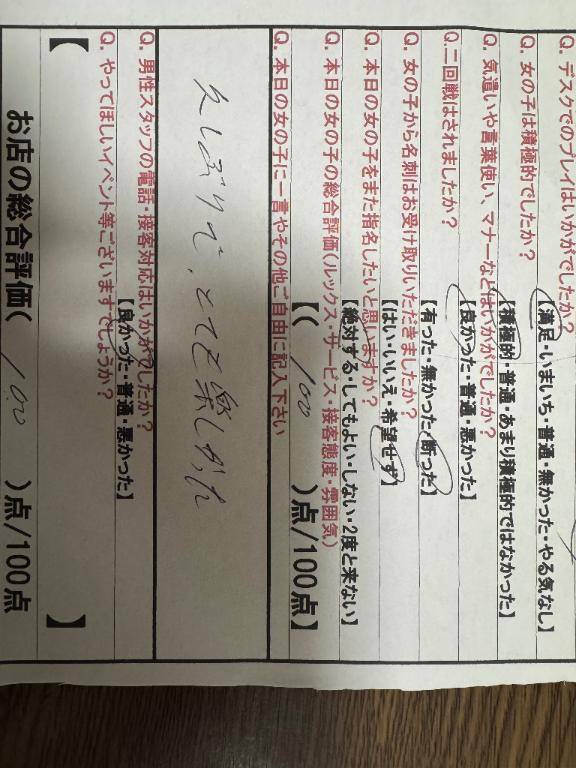 Q. デスクでのプレイはいかがでしたか?
【満足・いまいち・普通・無かった・やる気なし】
Q. 女の子は積極的でしたか?
【積極的・普通・あまり積極的ではなかった】
Q. 気遣いや言葉使い、マナーなどはいかがでしたか?
【良かった・普通・悪かった】
Q.二回戦はされましたか?
【有った・無かった・断った】
Q. 女の子から名刺はお受け取りいただきましたか?
【はい・いいえ・希望せず】
Q. 本日の女の子をまた指名したいと思いますか?
【絶対する・してもよい・しない・2度と来ない】
Q. 本日の女の子の総合評価(ルックス・サービス・接客態度・雰囲気)
【( 100 )点/100点】
Q. 本日の女の子に一言やその他ご自由に記入下さい
久しぶりで、とても楽しかった
Q. 男性スタッフの電話・接客対応はいかがでしたか?
【良かった・普通・悪かった】
Q. やってほしいイベント等ございますでしょうか?
【 】
お店の総合評価( 100 )点/100点